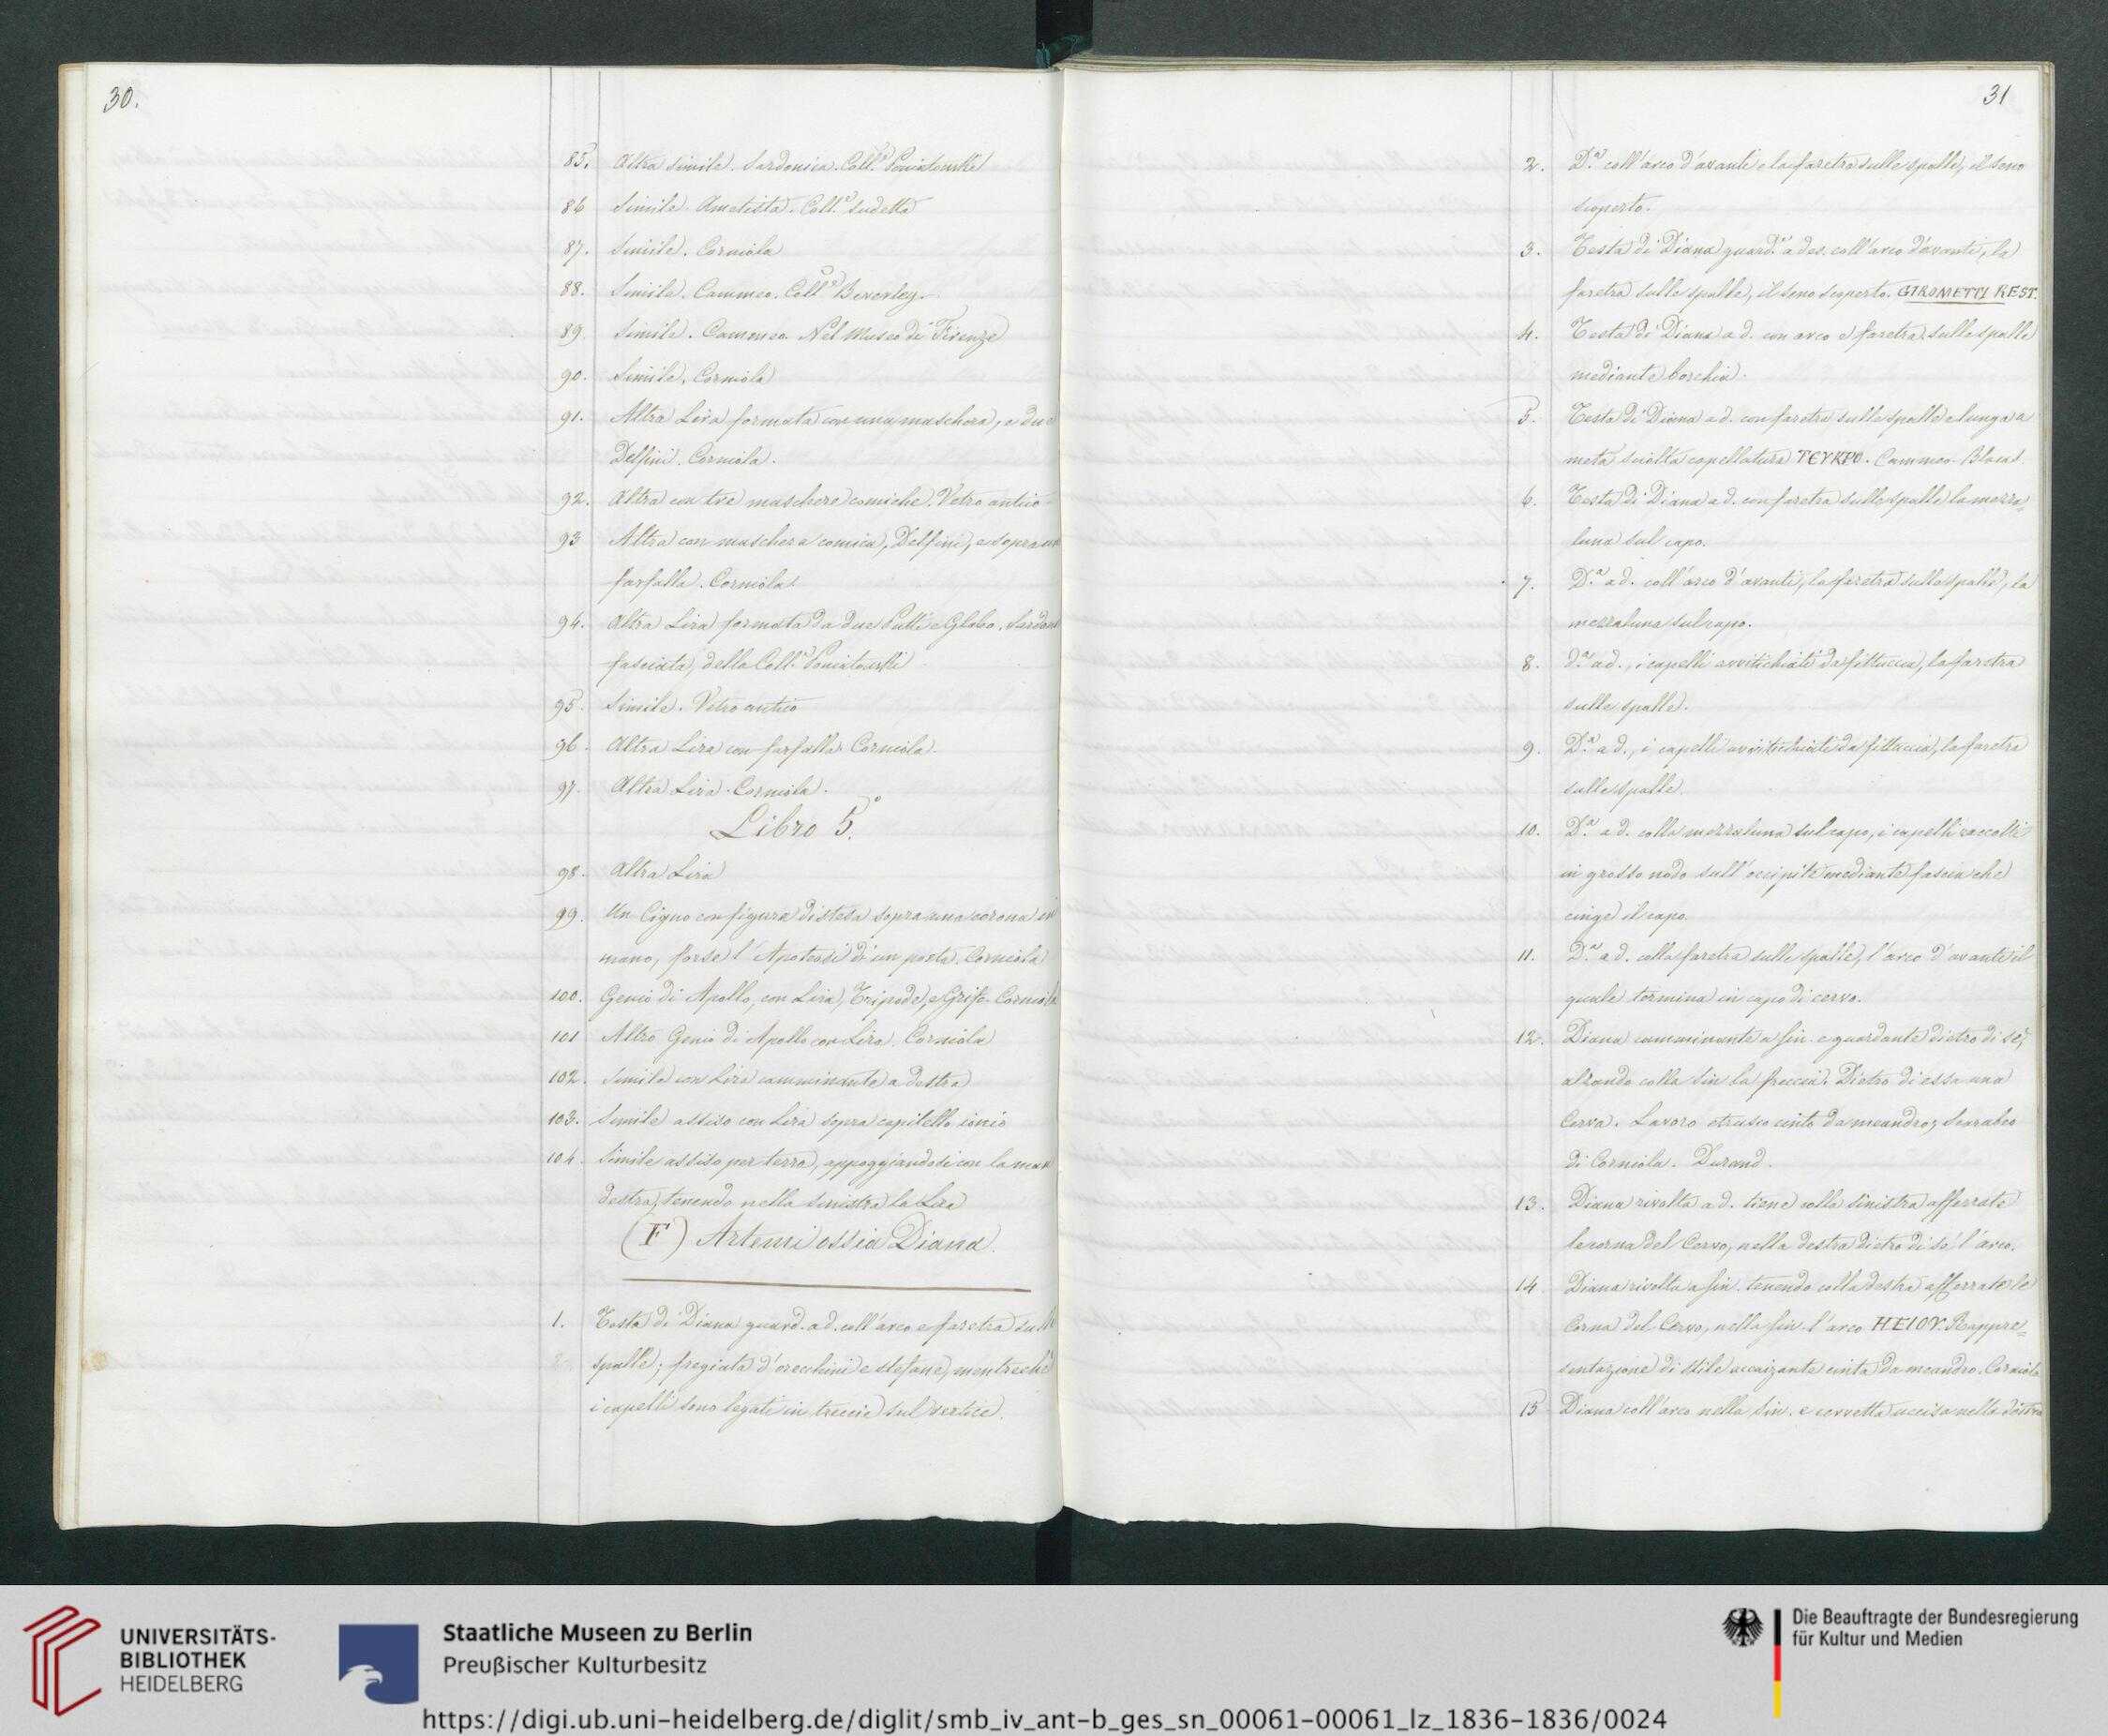 30.
85. Altra simile. Sardonica. Coll.ᵃ Poniatouski
86 Simile. Ametista. Coll.ᵃ sudetta
87. Simile. Corniola
88. Simile. Cammeo. Coll.ᵃ Beverley.
89. Simile. Cammeo. Nel Museo di Firenze
90. Simile. Corniola
91. Altra Lira formata con una maschera, e due
Delfini. Corniola.
92. Altra con tre maschere comiche. Vetro antico
93 Altra con maschera comica, Delfini, e sopra un
farfalla. Corniola
94. Altra Lira formata da due Putti e Globo. Sardon
fasciata, della Coll.ᵃ Poniatouski
95. Simile. Vetro antico
96. Altra Lira con farfalla. Corniola.
97. Altra Lira. Corniola.
Libro 5.°
98. Altra Lira
99. Un Cigno con figura distesa sopra una corona in
mano, forse l'Apoteosi di un poeta. Corniola
100. Genio di Apollo, con Lira, Tripode, e Grifo. Corniola
101 Altro Genio di Apollo con Lira. Corniola
102. Simile con Lira camminante a destra
103. Simile assiso con Lira sopra capitello ionio
104. Simile assiso per terra, appoggiandosi con la man
destra, tenendo nella sinistra la Lira
(F) Artemi ossia Diana.
1. Testa di Diana guard. a d. coll'arco e faretra sulle
spalle; fregiata d'orecchini e stefane, mentreché
i capelli sono legati in treccie sul vertice.
31
2. D.ᵃ coll'arco d'avanti e la faretra sulle spalle, il seno
scoperto.
3. Testa di Diana guard.ᵉ a des. coll'arco d'avanti, la
faretra sulle spalle, il seno scoperto. GIROMETTI REST.
4. Testa di Diana a d. con arco e faretra sulle spalle
mediante borchia.
5. Testa di Diana a d. con faretra sulle spalle e lunga a
metà sciolta capellatura ΤΕΥΚΡΟ. Cammeo. Blacas.
6. Testa di Diana a d. con faretra sulle spalle la mezza=
luna sul capo.
7. D.ᵃ a d. coll'arco d'avanti, la faretra sulle spalle, la
mezzaluna sul capo.
8. d.ᵃ a d., i capelli avvitichiati da fittuccia, la faretra
sulle spalle.
9. D.ᵃ a d., i capelli avvitichiati da fittuccia, la faretra
sulle spalle.
10. D.ᵃ a d. colla mezzaluna sul capo, i capelli raccolti
in grosso nodo sull'occipite mediante fascia che
cinge il capo.
11. D.ᵃ a d. colla faretra sulle spalle, l'arco d'avanti il
quale termina in capo di cervo.
12. Diana camminante a sin. e guardante dietro di sé,
alzando colla sin la freccia. Dietro di essa una
Cerva. Lavoro etrusco cinto da meandro; Scarabeo
di Corniola. Durand.
13. Diana rivolta a d. tiene colla sinistra afferrate
le corna del Cervo, nella destra dietro di sé l'arco.
14 Diana rivolta a sin. tenendo colla destra afferrate le
Corna del Cervo, nella sin. l'arco HEIOY. Rappre=
sentazione di stile arcaizante cinta da meandro. Corniola
15 Diana coll'arco nella sin. e cervetta uccisa nella destra
UNIVERSITÄTS-
BIBLIOTHEK
HEIDELBERG
Staatliche Museen zu Berlin
Preußischer Kulturbesitz
Die Beauftragte der Bundesregierung
für Kultur und Medien
https://digi.ub.uni-heidelberg.de/diglit/smb_iv_ant-b_ges_sn_00061-00061_lz_1836-1836/0024